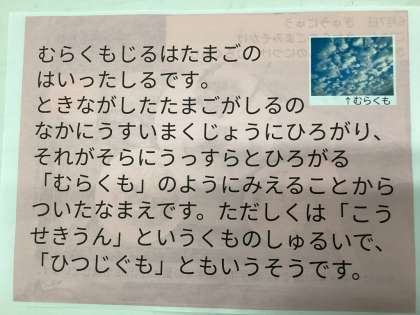 むらくもじるはたまごの
はいったしるです。
↑むらくも
ときながしたたまごがしるの
なかにうすいまくじょうにひろがり、
それがそらにうっすらとひろがる
「むらくも」のようにみえることから
ついたなまえです。ただしくは「こう
せきうん」というくものしゅるいで、
「ひつじぐも」ともいうそうです。